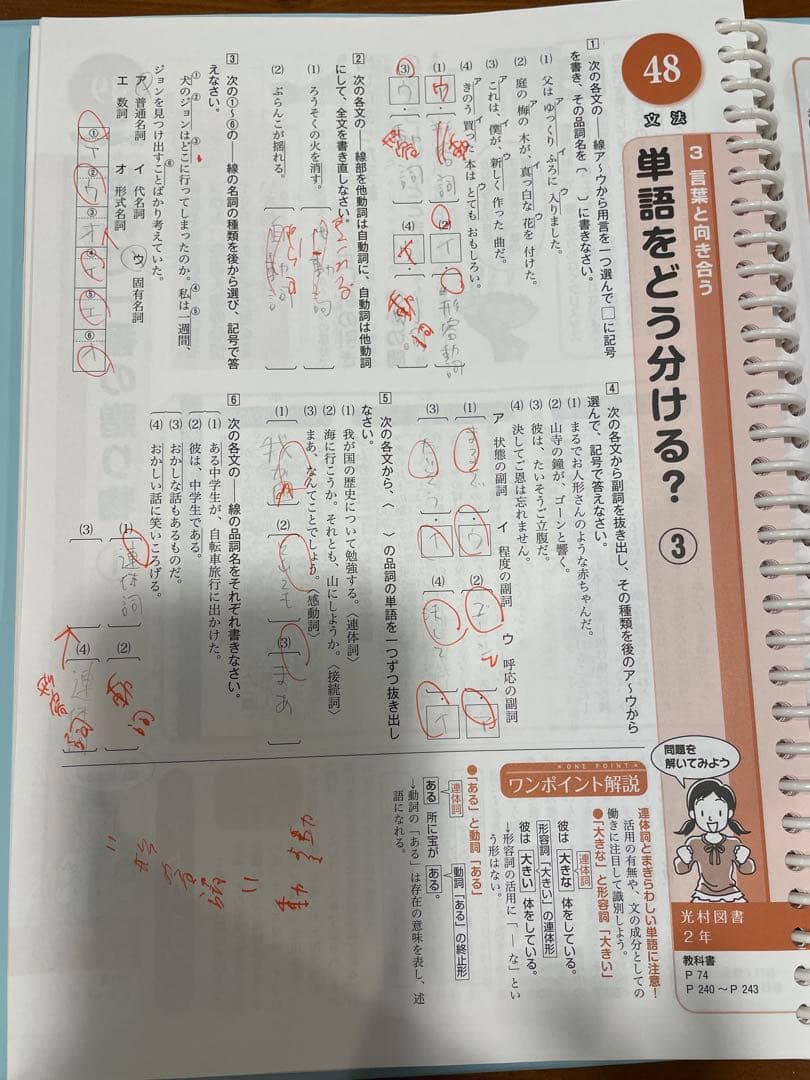 48
文法
3 言葉と向き合う
単語をどう分ける？③
1 次の各文の――線ア～ウから用言を一つ選んで□に記号
を書き、その品詞名を（　）に書きなさい。
(1) 父はゆっくりふろに入りました。
ア イ ウ
(2) 庭の梅の木が、真っ白な花を付けた。
ア イ ウ
(3) これは、僕が、新しく作った曲だ。
ア イ ウ
(4) きのう買った本はとてもおもしろい。
ア イ ウ
(1) ウ
動詞
(2) イ
形容動詞
(3)
(4)
動詞
2 次の各文の――線部を他動詞は自動詞に、自動詞は他動詞
にして、全文を書き直しなさい。
(1) ろうそくの火を消す。
(2) ぶらんこが揺れる。
自動詞
3 次の①～⑥の――線の名詞の種類を後から選び、記号で答
えなさい。
犬のジョンはどこに行ってしまったのか。私は一週間、
① ② ③ ④ ⑤
ジョンを見つけ出すことばかり考えていた。
⑥
ア 普通名詞 イ 代名詞 ウ 固有名詞
エ 数詞 オ 形式名詞
①
② ウ
③ オ
④ イ
⑤ エ
⑥ オ
4 次の各文から副詞を抜き出し、その種類を後のア～ウから
選んで、記号で答えなさい。
(1) まるでお人形さんのような赤ちゃんだ。
(2) 山寺の鐘が、ゴーンと響く。
(3) 彼は、たいそうご立腹だ。
(4) 決してご恩は忘れません。
ア 状態の副詞 イ 程度の副詞 ウ 呼応の副詞
(1) まるで ウ
(2)
(3) たいそう イ
(4) 決して
5 次の各文から、〈　〉の品詞の単語を一つずつ抜き出し
なさい。
(1) 我が国の歴史について勉強する。〈連体詞〉
(2) 海に行こうか。それとも、山にしようか。〈接続詞〉
(3) まあ、なんてことでしょう。〈感動詞〉
(1) 我が
(2) それとも
(3) まあ
6 次の各文の――線の品詞名をそれぞれ書きなさい。
(1) ある中学生が、自転車旅行に出かけた。
(2) 彼は、中学生である。
(3) おかしな話もあるものだ。
(4) おかしい話に笑いころげる。
(1) 連体詞
(2) 動詞
(3)
(4)
ONE POINT
ワンポイント解説
問題を
解いてみよう
連体詞とまぎらわしい単語に注意！
活用の有無や、文の成分としての
働きに注目して識別しよう。
●「大きな」と形容詞「大きい」
連体詞
彼は 大きな 体をしている。
形容詞「大きい」の連体形
彼は 大きい 体をしている。
→形容詞の活用に「―な」とい
う形はない。
●「ある」と動詞「ある」
連体詞
動詞「ある」の終止形
ある 所に宝が ある。
→動詞の「ある」は存在の意味を表し、述
語になれる。
光村図書
2年
教科書
P 74
P 240～P 243